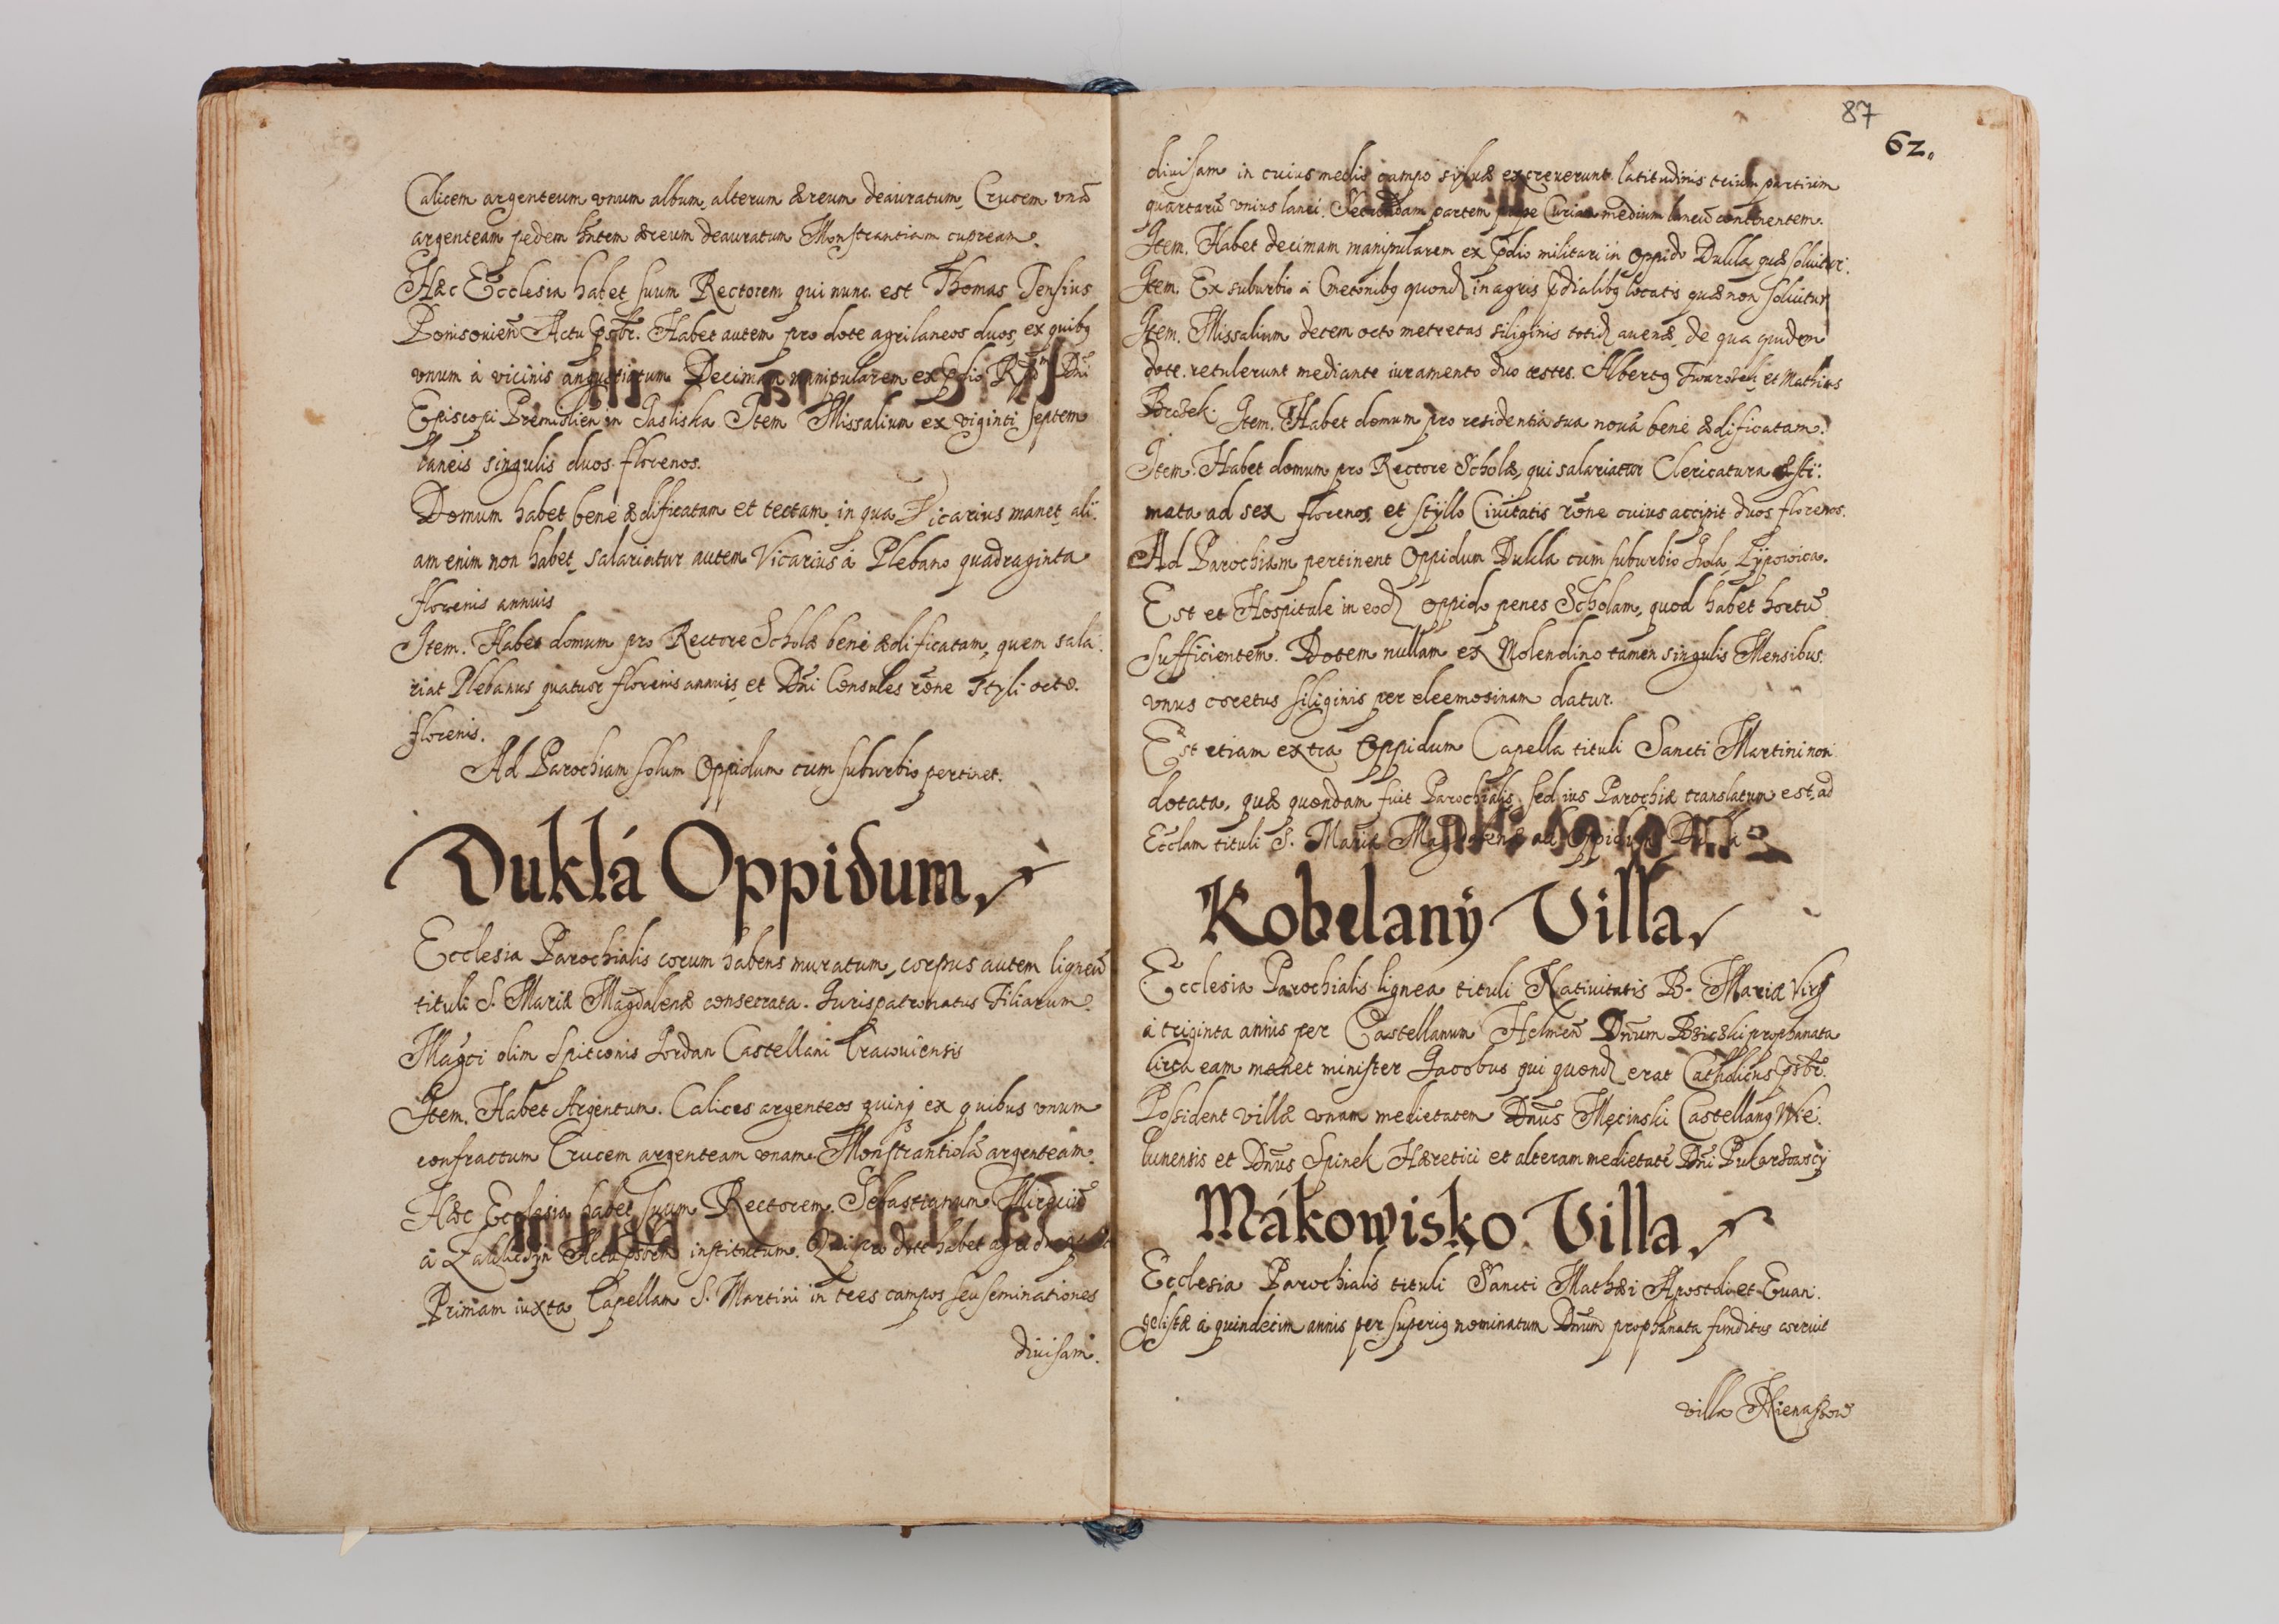 Calicem argenteum vnum album, alterum æreum deauratum, Crucem vnā
argenteam pedem hñtem æreum deauratum Monstrantiam cupream.
Hæc Ecclesia habet suum Rectorem qui nunc est Thomas Tensius
Actu psbr. Habet autem pro dote agri laneos duos, ex quibꝫ
vnum à vicinis angustiatum Decimam manipularem ex
Episcopi Premislien in Jasliska Item Missalium ex viginti septem
laneis singulis duos florenos.
Domum habet bene ædificatam et tectam, in qua Vicarius manet, ali:
am enim non habet, salariatur autem Vicarius á Plebano quadraginta
florenis annuis
Item. Habet domum pro Rectore Scholæ bene ædificatam, quem sala:
riat Plebanus quatuor florenis annuis, et Dñi Consules rõne styli octo.
florenis.
Ad Parochiam solum Oppidum cum suburbio pertinet.
Duklá Oppidum
Ecclesia Parochialis corum habens muratum, corpus autem ligneū
tituli S. Mariæ Magdalenæ consecrata. Jurispatronatus Filiarum
Magci olim Spitconis Jordan Castellani Cracouiensis
Item. Habet Argentum. Calices argenteos quinqꝫ ex quibus vnum
confractum Crucem argenteam vnam. Monstrantiolā argenteam.
Hæc Ecclesia habet suum Rectorem. Sebastianum
à institutum. Qui pro dote habet agri
Primam iuxta Capellam S. Martini in tres campos seu seminationes
diuisam.
87
62.
diuisam in cuius medio campo syluæ excreuerunt latitudinis trium partium
quartarū vnius lanei. Secundam partem prope Curiam medium laneū continentem.
Item. Habet decimam manipularem ex pdio militari in Oppido Dukla quæ soluitur.
Item. Ex suburbio à Cmetonibꝫ quond in agris pdialibꝫ locatis quæ non soluitur
Item. Missalium decem octo metretas siliginis totid auenæ, de qua quidem
dote retulerunt mediante iuramento duo testes. Albertꝫ et Mathias
Item. Habet domum pro residentia sua noua bene ædificatam.
Item. Habet domum pro Rectore Scholæ, qui salariatur Clericatura æsti:
mata ad sex florenos, et styllo Ciuitatis rõne cuius accipit duos florenos.
Ad Parochiam pertinent Oppidum Dukla cum suburbio
Est et Hospitale in eod Oppido penes Scholam, quod habet hortū
sufficientem. Dotem nullam ex Molendino tamen singulis Mensibus
vnus coretus siliginis per eleemosinam datur.
Est etiam extra Oppidum Capella tituli Sancti Martini non
dotata, quæ quondam fuit Parochialis, sed ius Parochiæ translatum est, ad
Ecclam tituli S. Mariæ Magdalenæ ad Oppidum Dukla
Kobelanÿ Villa
Ecclesia Parochialis lignea tituli Natiuitatis B. Mariæ Virg
à triginta annis per Castellanum Helmeñ Dnum prophanata
circa eam manet minister Jacobus qui quond erat Catholicus psbr.
Possident villæ vnam medietatem Dnus Męcinski Castellanꝫ Wie:
lunensis et Dnus Spinek Hæretici et alteram medietatē Dñi
Mákowisko Villa
Ecclesia Parochialis tituli Sancti Mathæi Apostoli et Euan:
gelistæ à quindecim annis per superiꝫ nominatum Dnum prophanata funditus corruit
villa